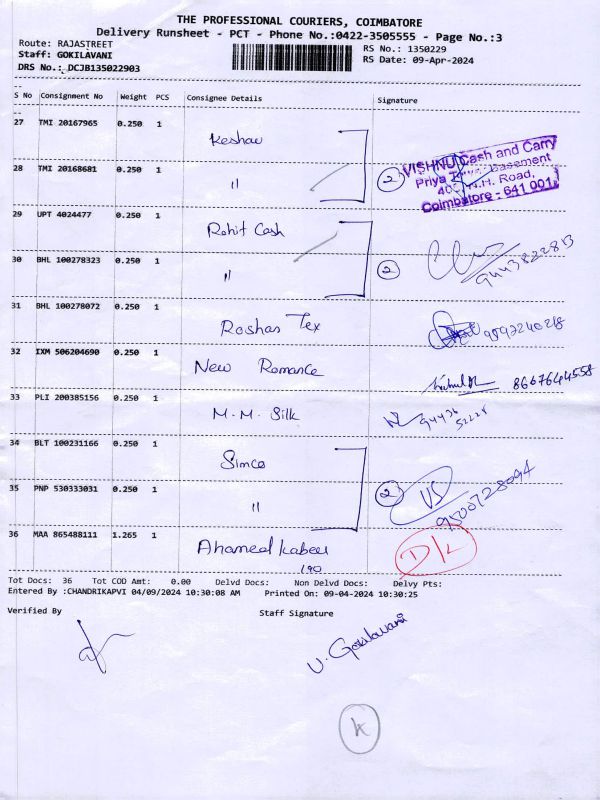 THE PROFESSIONAL COURIERS, COIMBATORE
Delivery Runsheet - PCT - Phone No.:0422-3505555 - Page No.:3
Route: RAJASTREET
Staff: GOKILAVANI
DRS No.: DCJB135022903
RS No.: 1350229
RS Date: 09-Apr-2024
S No Consignment No Weight PCS Consignee Details Signature
27 TMI 20167965 0.250 1 Keshav
28 TMI 20168681 0.250 1 " 2
VISHNU Cash and Carry
Priya Basement
N.H. Road,
Coimbatore - 641 001.
29 UPT 4024477 0.250 1 Rohit Cash
30 BHL 100278323 0.250 1 " 2 9443822813
31 BHL 100278072 0.250 1 Roshan Tex
32 IXM 506204690 0.250 1 New Romance 8667644558
33 PLI 200385156 0.250 1 M.M. Silk
34 BLT 100231166 0.250 1 Simco
35 PNP 530333031 0.250 1 " 2 VS 9500728094
36 MAA 865488111 1.265 1 Ahamed Kabeer D/L
Tot Docs: 36 Tot COD Amt: 0.00 Delvd Docs: Non Delvd Docs: Delvy Pts:
Entered By :CHANDRIKAPVI 04/09/2024 10:30:08 AM Printed On: 09-04-2024 10:30:25
Verified By Staff Signature
V. Gokilavani
K